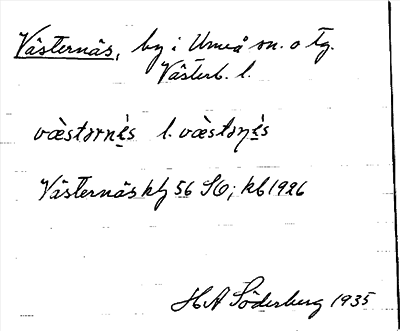 Västernäs, by i Umeå sn. o tg.
Västerb. l.
væ̀stərnɛ́s l. væ̀stəɳɛ́s
Västernäs kbl 56 SO; kb 1926
H A Söderberg 1935